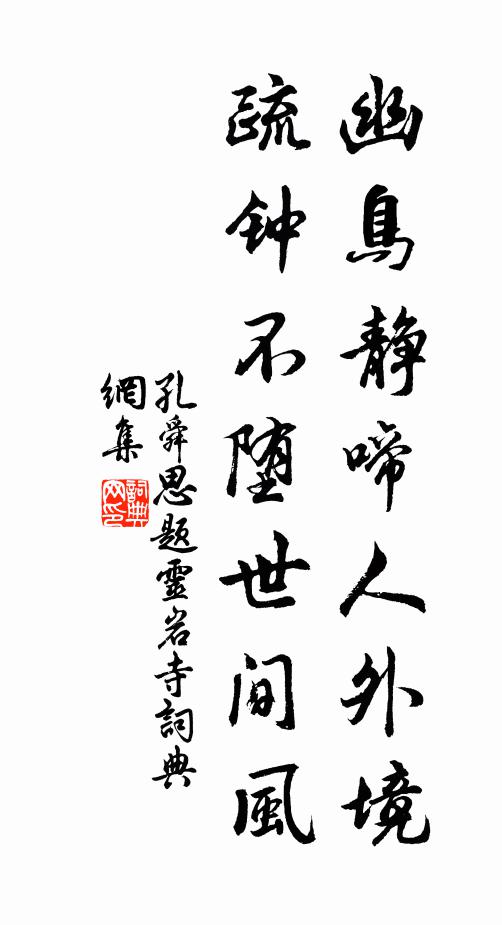 幽鳥静啼人外境
疏钟不堕世间風
孔舜思題靈岩寺詞典
網集
詞典網印